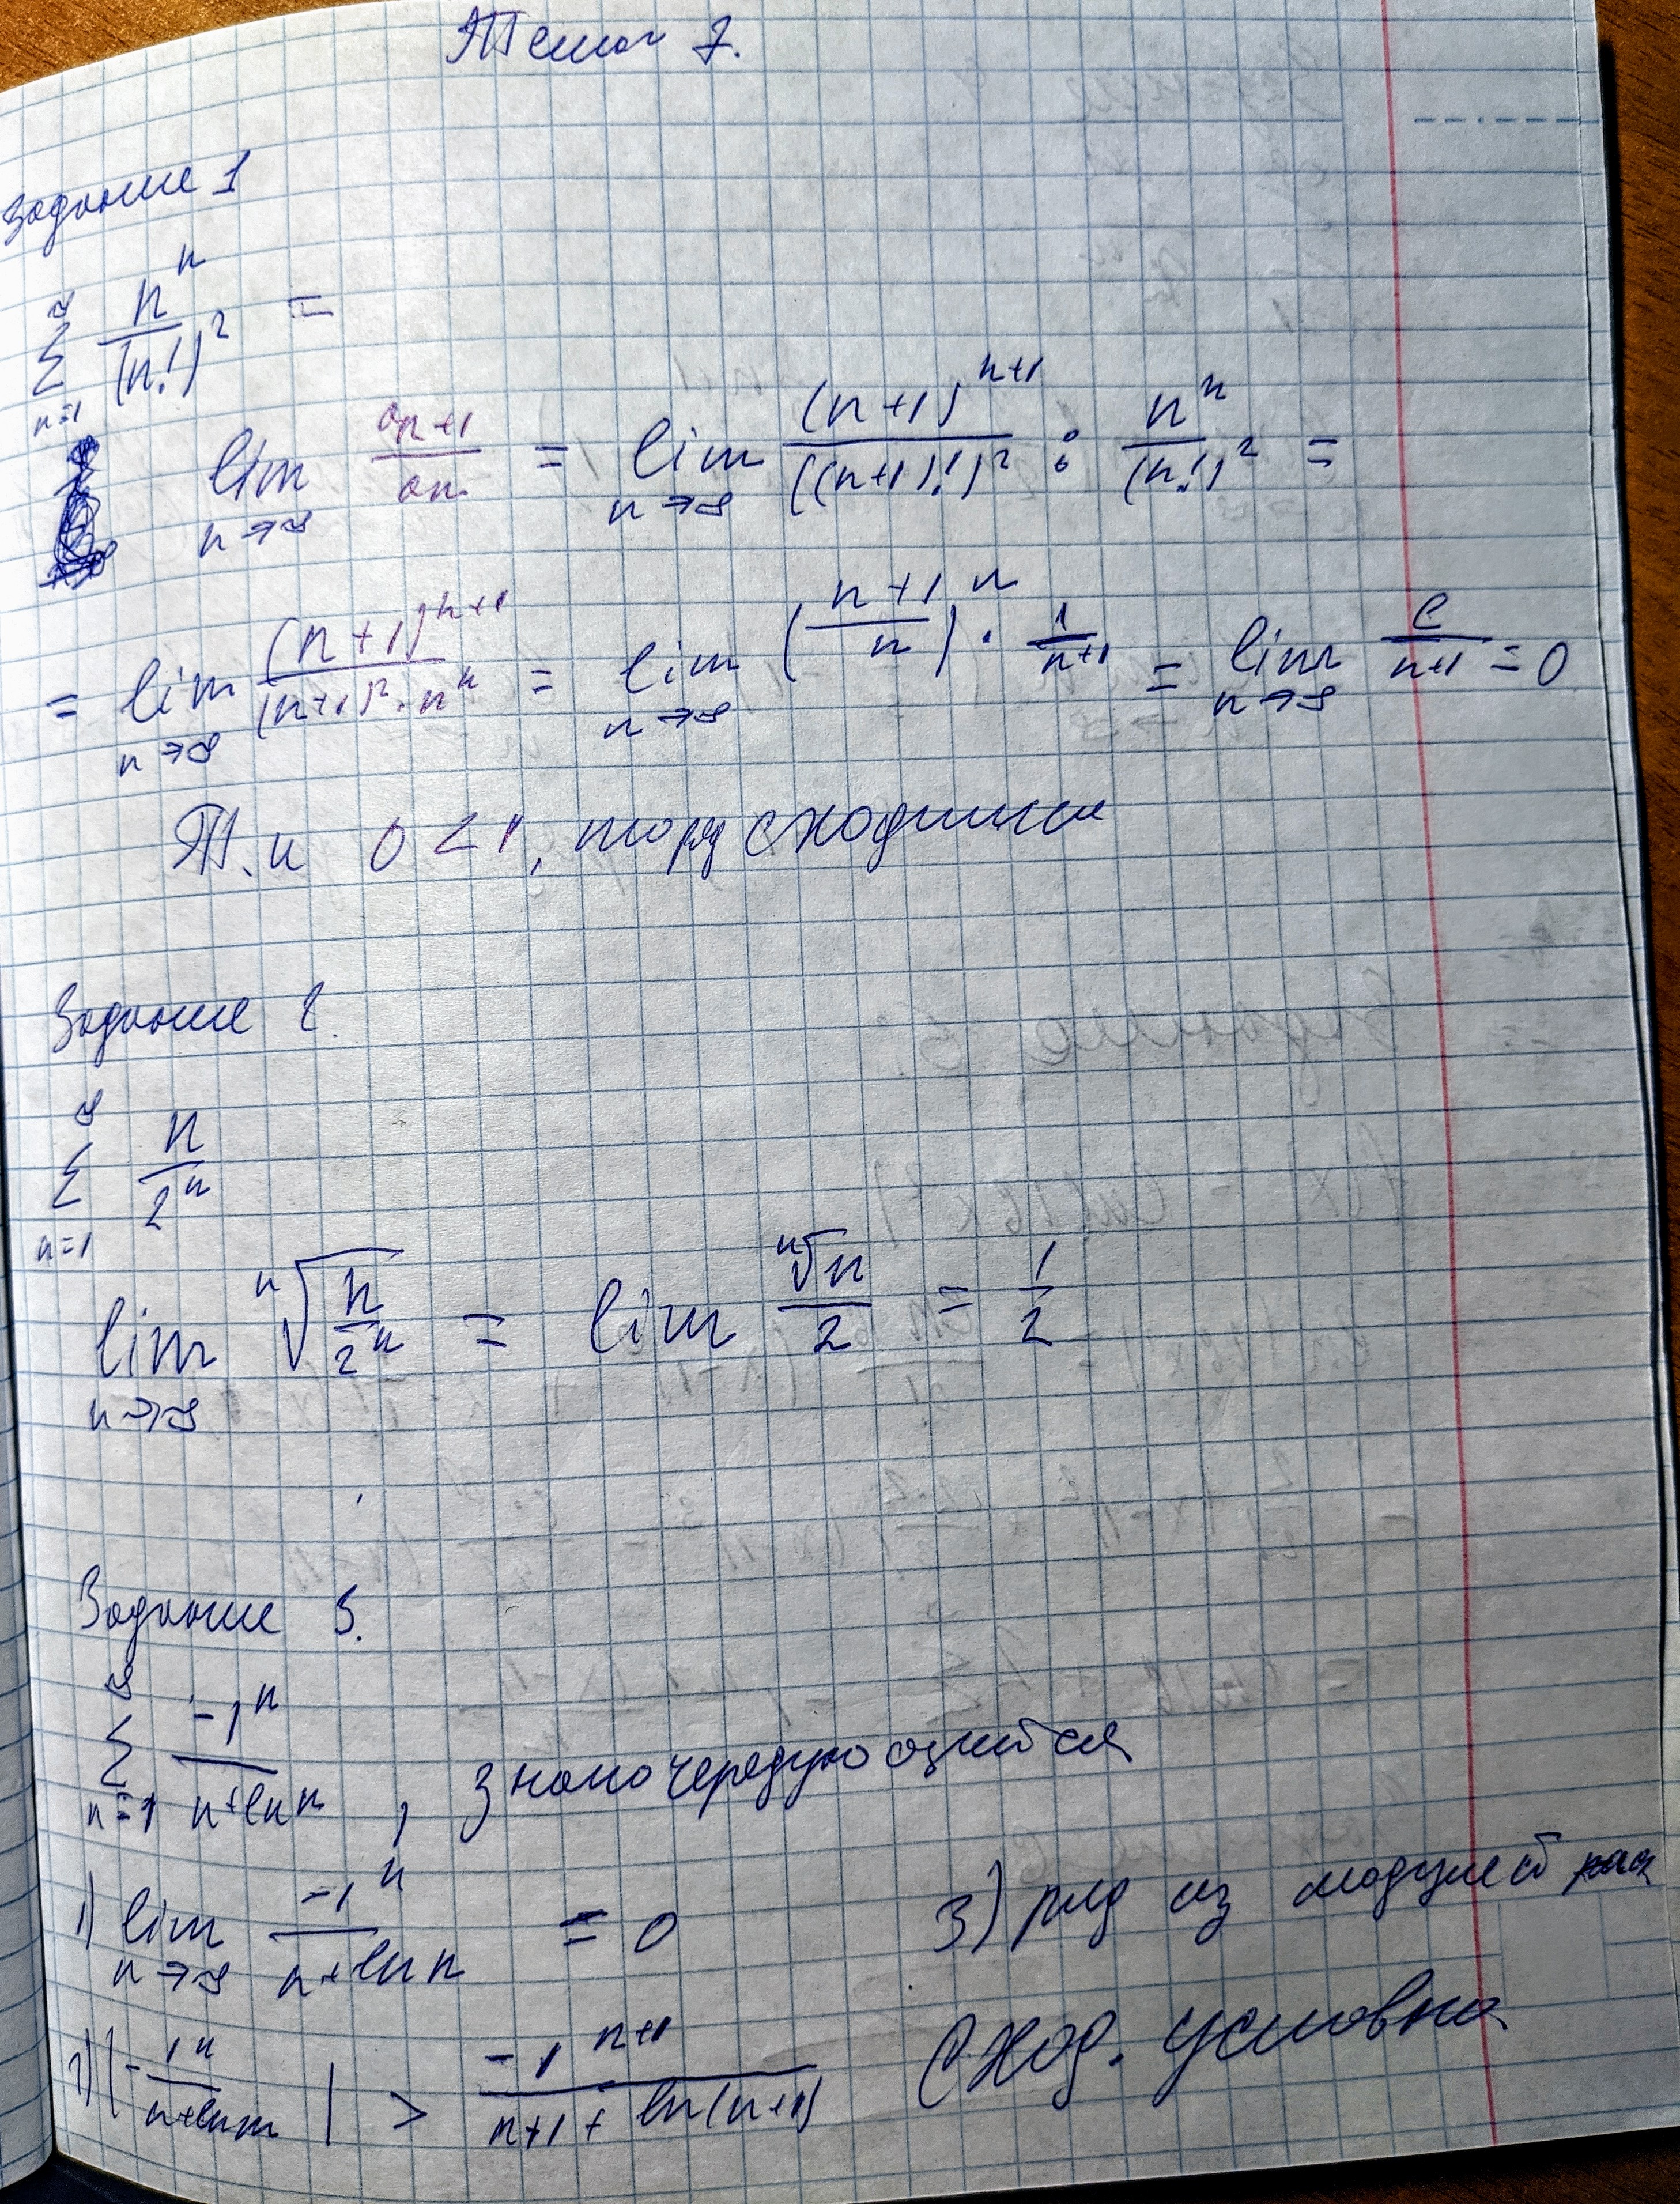 Тема 7.
Задание 1
∑_{n=1}^{∞} n^n/(n!)^2 =
lim_{n→∞} a_{n+1}/a_n = lim_{n→∞} (n+1)^{n+1}/((n+1)!)^2 : n^n/(n!)^2 =
= lim_{n→∞} (n+1)^{n+1}/((n+1)^2·n^n) = lim_{n→∞} ((n+1)/n)^n · 1/(n+1) = lim_{n→∞} e/(n+1) = 0
Т.к 0<1, то ряд сходится
Задание 2.
∑_{n=1}^{∞} n/2^n
lim_{n→∞} ⁿ√(n/2^n) = lim ⁿ√n/2 = 1/2
Задание 3.
∑_{n=1}^{∞} -1^n/(n+ln n), знакочередующийся
1) lim_{n→∞} -1^n/(n+ln n) = 0
2) |-1^n/(n+ln n)| > -1^{n+1}/(n+1+ln(n+1))
3) ряд из модулей
Сход. условно